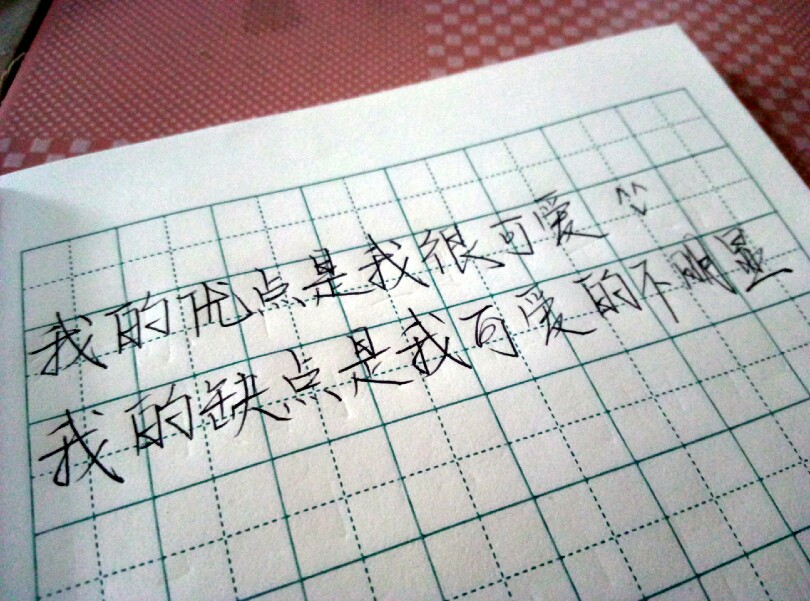 我的优点是我很可爱 ^^
我的缺点是我可爱的不明显